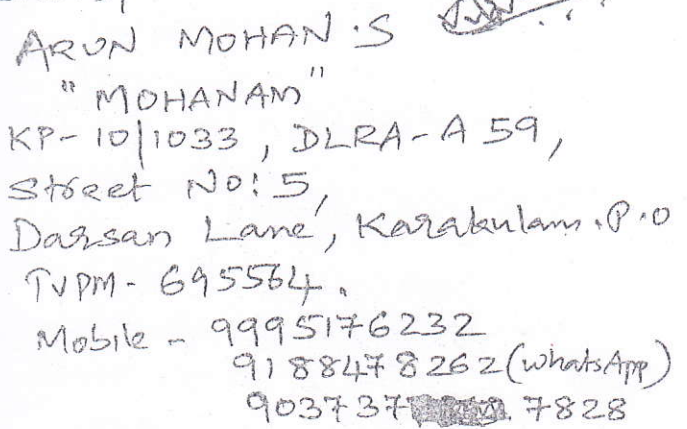 ARUN MOHAN.S
"MOHANAM"
KP-10/1033, DLRA-A 59,
Street No: 5,
Darsan Lane, Karakulam.P.O
TVPM- 695564.
Mobile - 9995176232
9188478262 (whatsApp)
903737 7828